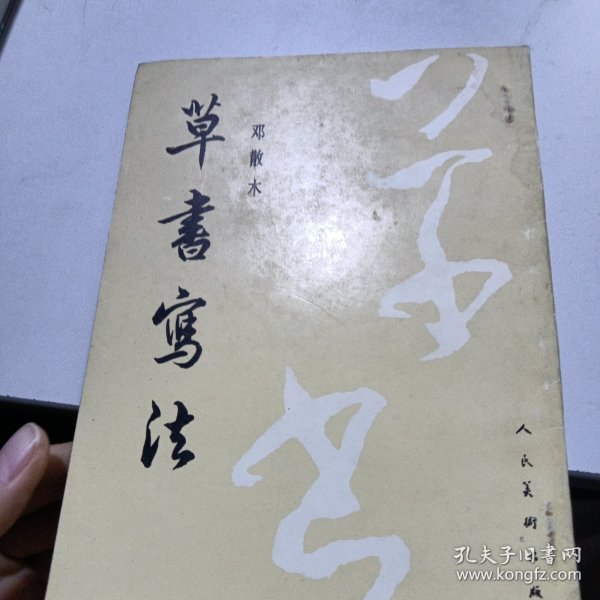 草書寫法
邓散木
草书
人民美術出版
孔夫子旧书网
www.kongfz.com